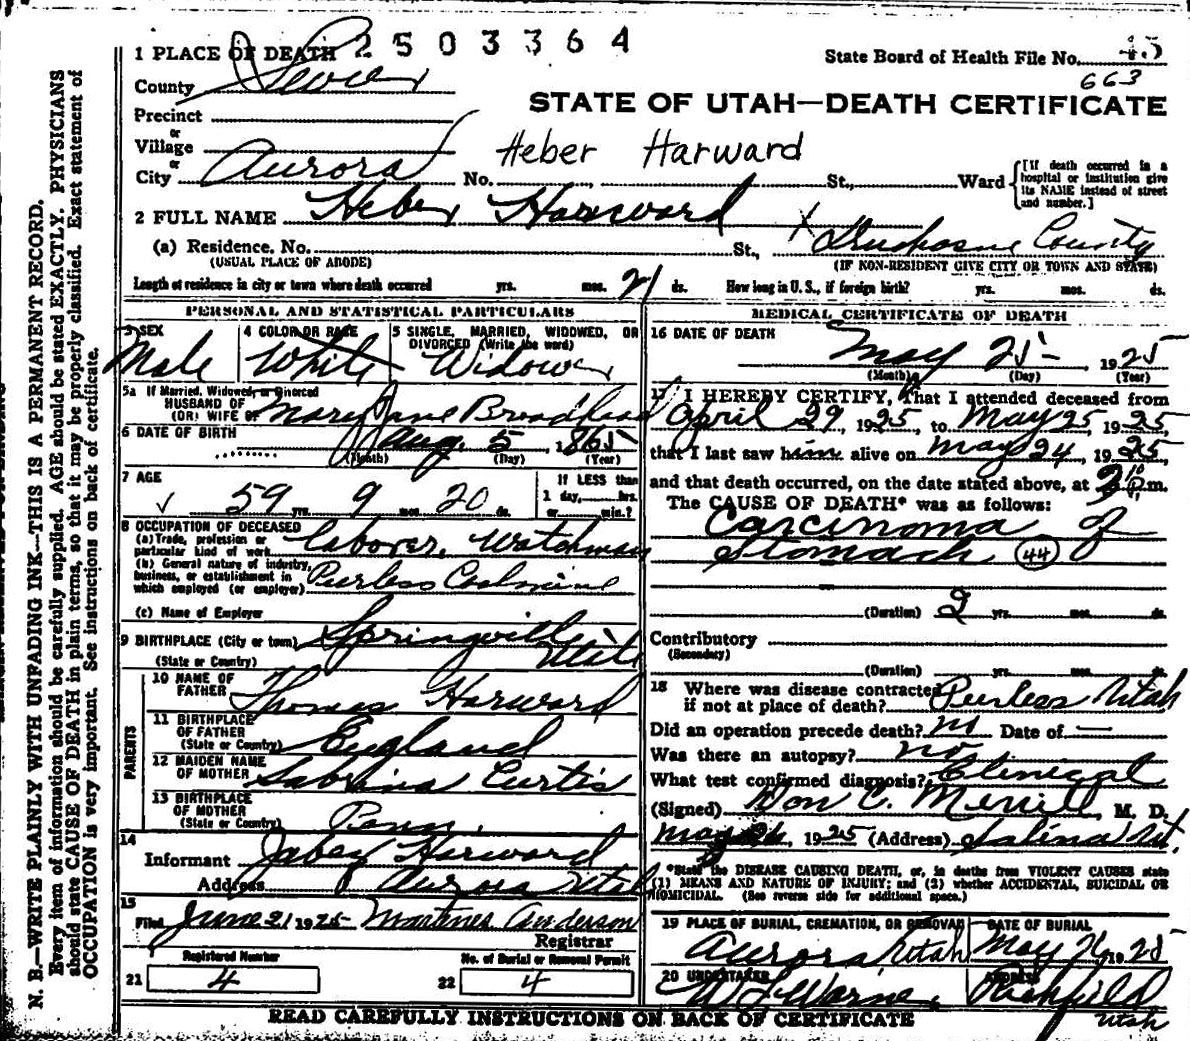 2503364
1 PLACE OF DEATH
State Board of Health File No. 45
663
County Sevier
STATE OF UTAH—DEATH CERTIFICATE
Precinct
or
Village
Heber Harward
or
City Aurora No. , St., Ward
[If death occurred in a hospital or institution give its NAME instead of street and number.]
2 FULL NAME Heber Harward
(a) Residence, No. St., X Duchesne County
(USUAL PLACE OF ABODE) (IF NON-RESIDENT GIVE CITY OR TOWN AND STATE)
Length of residence in city or town where death occurred yrs. mos. 21 ds. How long in U. S., if foreign birth? yrs. mos. ds.
PERSONAL AND STATISTICAL PARTICULARS
3 SEX Male
4 COLOR OR RACE White
5 SINGLE, MARRIED, WIDOWED, OR DIVORCED (Write the word) Widower
5a If Married, Widowed, or Divorced
HUSBAND OF
(OR) WIFE OF Mary Jane Broadhead
6 DATE OF BIRTH Aug. 5, 1865
(Month) (Day) (Year)
7 AGE
✓ 59 yrs. 9 mos. 20 ds.
If LESS than
1 day, hrs.
or min.?
8 OCCUPATION OF DECEASED
(a) Trade, profession or
particular kind of work Laborer, Watchman
(b) General nature of industry,
business, or establishment in
which employed (or employer) Peerless Coal mine
(c) Name of Employer
9 BIRTHPLACE (City or town) Springville
(State or Country) Utah
PARENTS
10 NAME OF
FATHER Thomas Harward
11 BIRTHPLACE
OF FATHER
(State or Country) England
12 MAIDEN NAME
OF MOTHER Sabrina Curtis
13 BIRTHPLACE
OF MOTHER
(State or Country) Penn.
14
Informant Jabez Harward
Address Aurora Utah
15
Filed June 21 1925 Martines Anderson
Registrar
Registered Number
21 4
No. of Burial or Removal Permit
22 4
MEDICAL CERTIFICATE OF DEATH
16 DATE OF DEATH
May 25 1925
(Month) (Day) (Year)
17 I HEREBY CERTIFY, that I attended deceased from
April 29, 1925, to May 25, 1925,
that I last saw him alive on May 24, 1925
and that death occurred, on the date stated above, at m.
The CAUSE OF DEATH* was as follows:
Carcinoma of
Stomach 44
(Duration) 2 yrs. mos. ds.
Contributory
(Secondary)
(Duration) yrs. mos. ds.
18 Where was disease contracted
if not at place of death? Peerless Utah
Did an operation precede death? Date of —
Was there an autopsy? no
What test confirmed diagnosis? Clinical
(Signed) Don C. Merrill, M. D.
May 26, 1925 (Address) Salina Ut.
*State the DISEASE CAUSING DEATH, or, in deaths from VIOLENT CAUSES state
(1) MEANS AND NATURE OF INJURY; and (2) whether ACCIDENTAL, SUICIDAL OR
HOMICIDAL. (See reverse side for additional space.)
19 PLACE OF BURIAL, CREMATION, OR REMOVAL
Aurora Utah
DATE OF BURIAL
May 26 1925
20 UNDERTAKER
ADDRESS
Richfield
Utah
READ CAREFULLY INSTRUCTIONS ON BACK OF CERTIFICATE
N. B.—WRITE PLAINLY WITH UNFADING INK—THIS IS A PERMANENT RECORD.
Every item of information should be carefully supplied. AGE should be stated EXACTLY. PHYSICIANS
should state CAUSE OF DEATH in plain terms, so that it may be properly classified. Exact statement of
OCCUPATION is very important. See instructions on back of certificate.